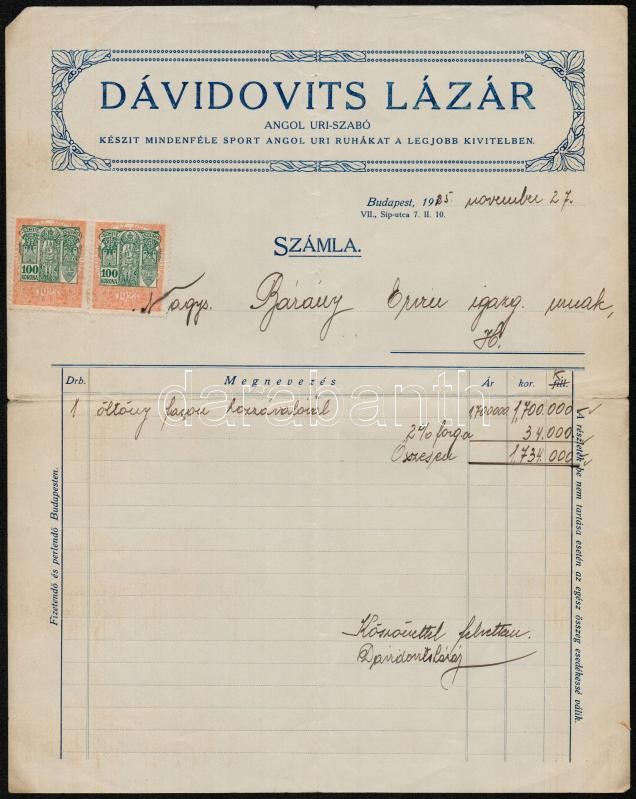 DÁVIDOVITS LÁZÁR
ANGOL URI-SZABÓ
KÉSZIT MINDENFÉLE SPORT ANGOL URI RUHÁKAT A LEGJOBB KIVITELBEN.
Budapest, 1925. november 27.
VII., Sip-utca 7. II. 10.
SZÁMLA.
100 KORONA
100 KORONA
Nagys. Bárány igazg. urnak,
H.
Drb. Megnevezés Ár kor. fill. K
1 öltöny fazon hozzávalóval 1700000 1,700.000
2% forga 34.000
Összesen 1,734.000
Fizetendő és perlendő Budapesten.
A részletek be nem tartása esetén az egész összeg esedékessé válik.
Köszönettel felvettem.
Dávidovits Lázár
darabanth